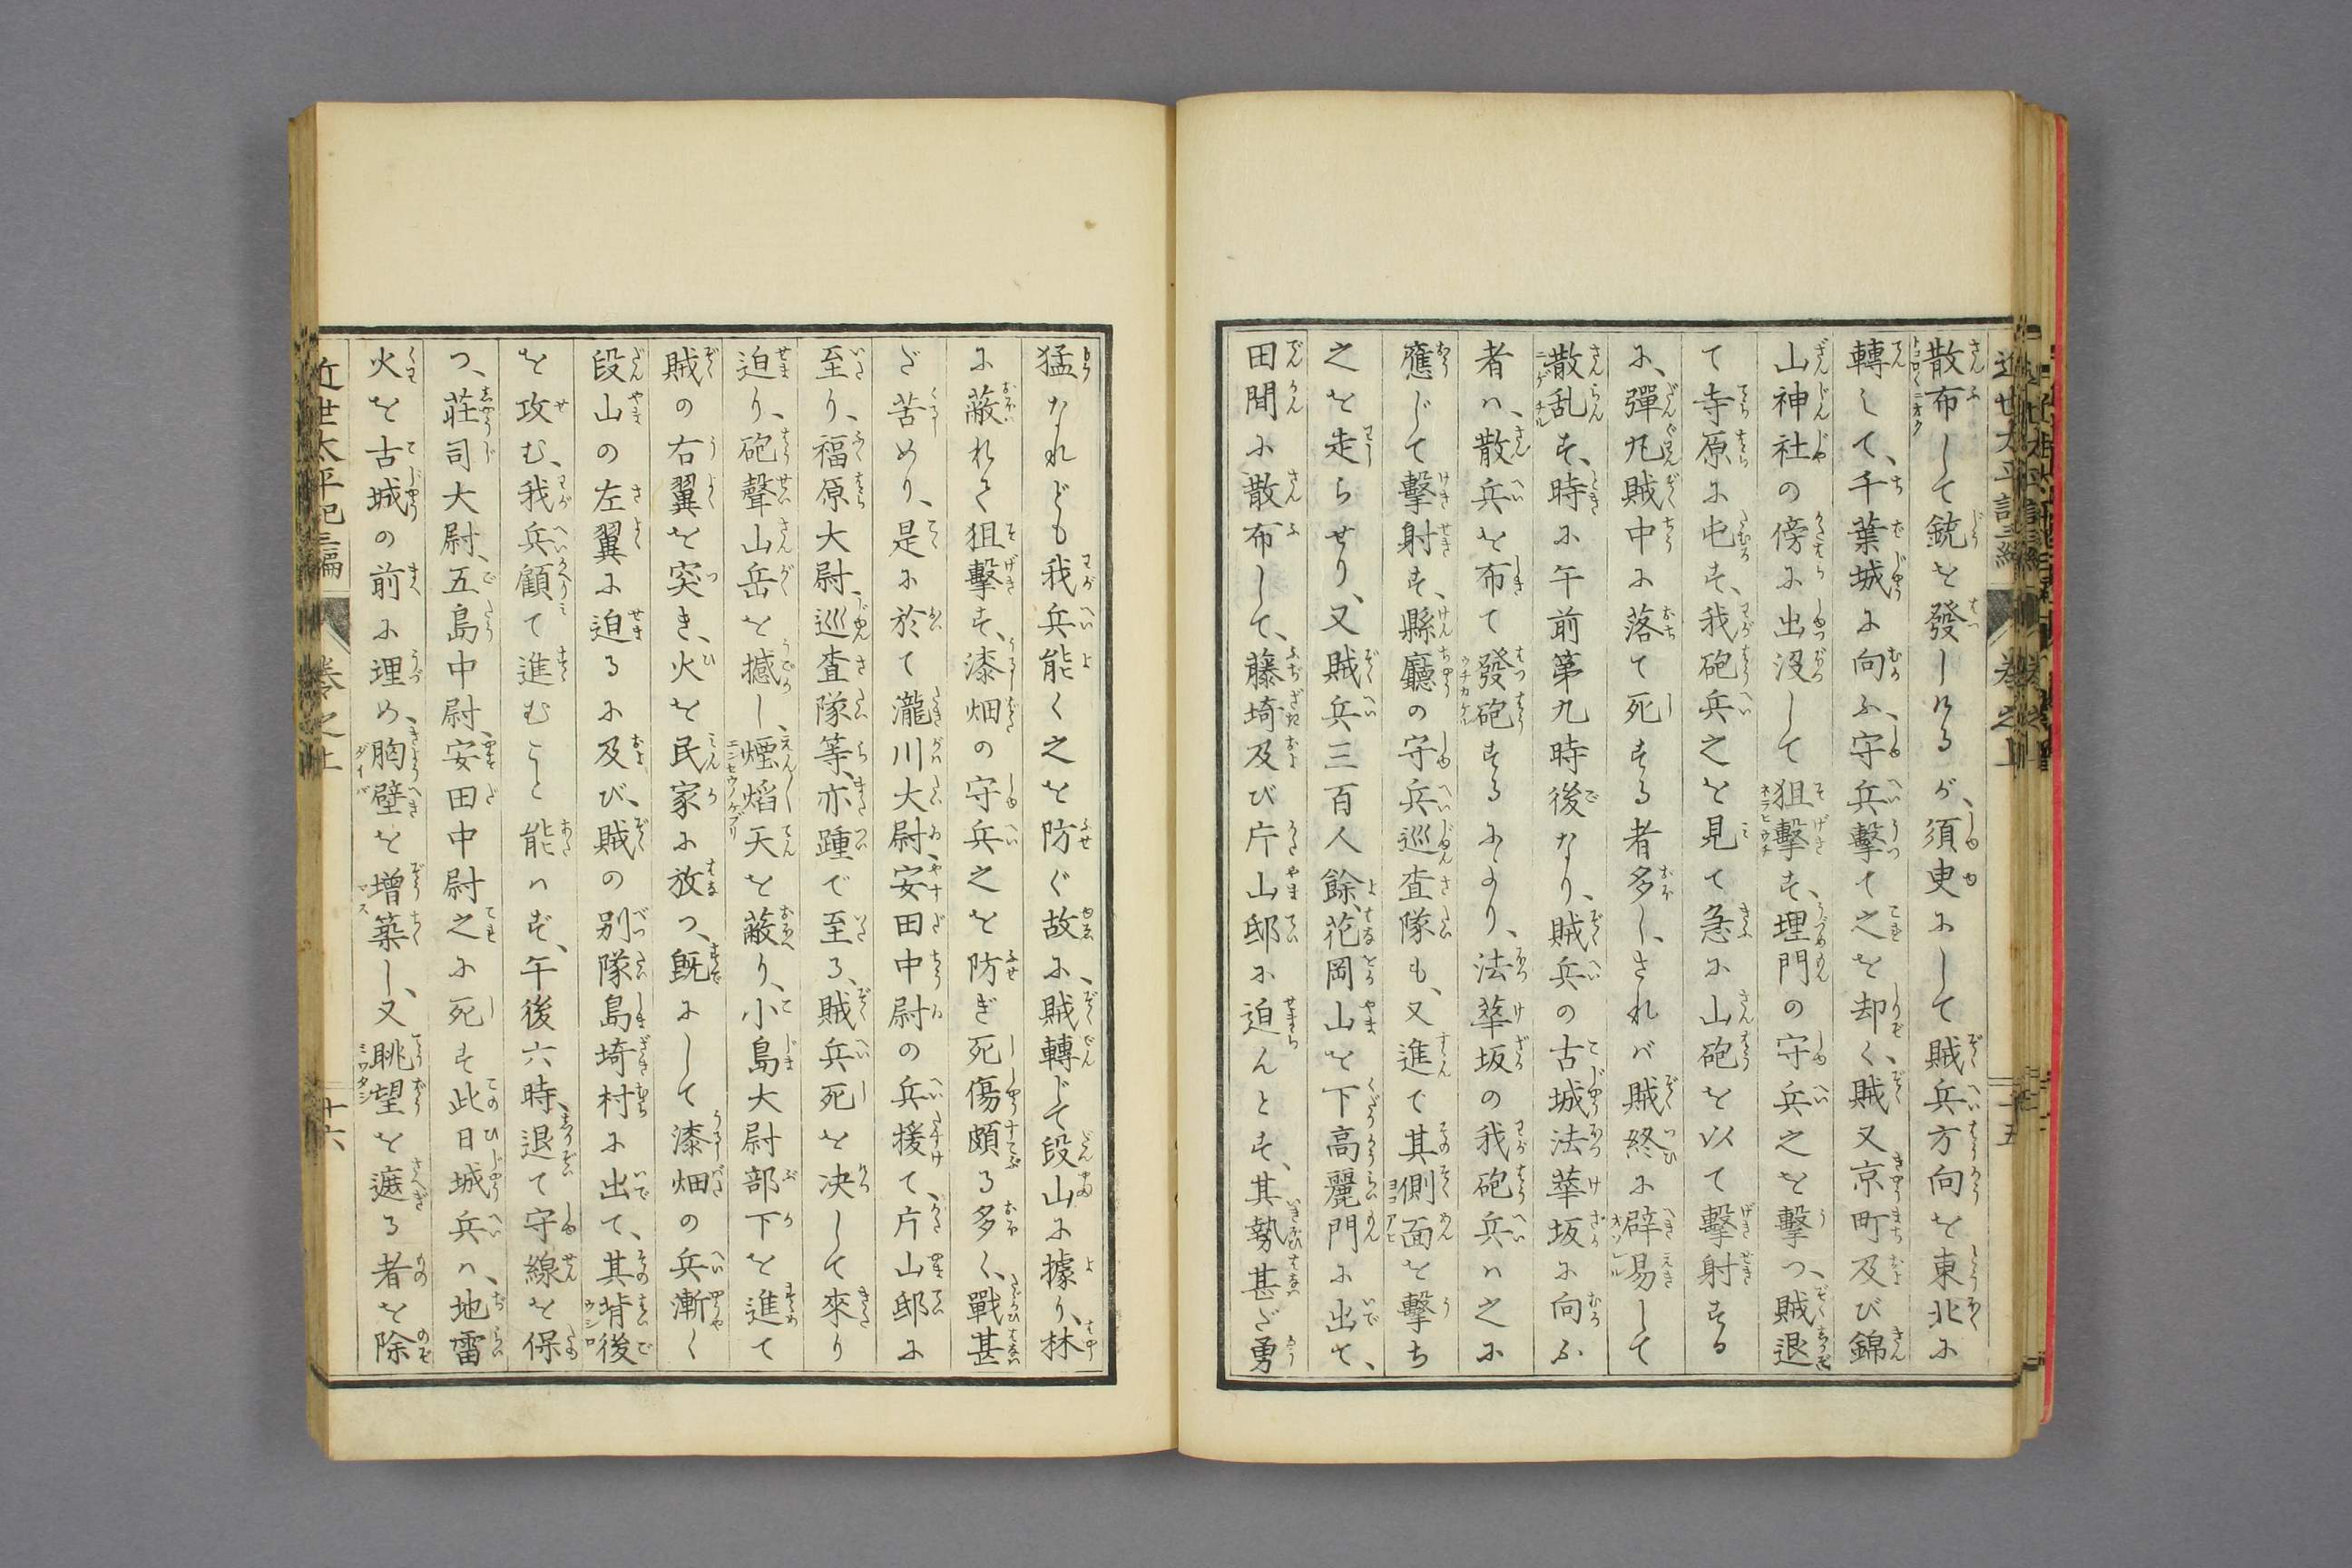 近世太平記三編 卷之上 十五
散布して銃を發しけるが、須臾にして賊兵方向を東北に
轉して、千葉城に向ふ、守兵擊て之を却く、賊又京町及び錦
山神社の傍に出沒して狙擊す、埋門の守兵之を擊つ、賊退
て寺原に屯す、我砲兵之を見て急に山砲を以て擊射する
に、彈丸賊中に落て死する者多し、されバ賊終に辟易して
散乱す、時に午前第九時後なり、賊兵の古城法華坂に向ふ
者ハ、散兵を布て發砲するにより、法華坂の我砲兵ハ之に
應じて擊射す、縣廳の守兵巡査隊も、又進で其側面を擊ち
之を走らせり、又賊兵三百人餘、花岡山を下高麗門に出て、
田間に散布して、藤埼及び片山邸に迫んとす、其勢甚だ勇
猛なれども我兵能く之を防ぐ故に、賊轉じて段山に據り、林
に蔽れて狙擊す、漆畑の守兵之を防ぎ死傷頗る多く、戰甚
だ苦めり、是に於て瀧川大尉、安田中尉の兵援て、片山邸に
至り、福原大尉、巡査隊等、亦踵で至る、賊兵死を决して來り
迫り、砲聲山岳を撼し、煙熖天を蔽り、小島大尉部下を進て
賊の右翼を突き、火を民家に放つ、既にして漆畑の兵漸く
段山の左翼に迫るに及び、賊の别隊島埼村に出て、其背後
を攻む、我兵顧て進むこと能ハず、午後六時、退て守線を保
つ、莊司大尉、五島中尉、安田中尉之に死す此日城兵ハ、地雷
火を古城の前に埋め、胸壁を增築し、又眺望を遮る者を除
近世太平記三編 卷之上 十六